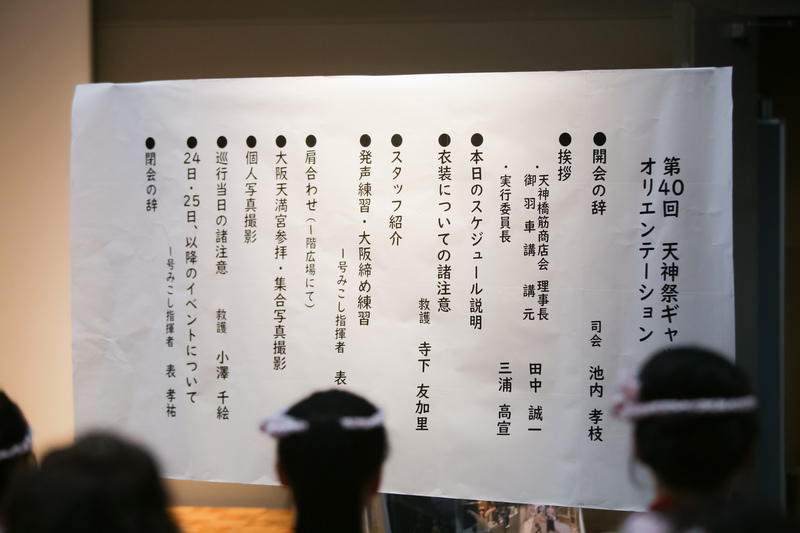 第40回 天神祭ギャ
オリエンテーション
●開会の辞 司会 池内 孝枝
●挨拶
・天神橋筋商店会 理事長
・御羽車講 講元 田中 誠一
・実行委員長 三浦 高宣
●本日のスケジュール説明
●衣装についての諸注意
救護 寺下 友加里
●スタッフ紹介
●発声練習・大阪締め練習
1号みこし指揮者 表
●肩合わせ(1階広場にて)
●大阪天満宮参拝・集合写真撮影
●個人写真撮影
●巡行当日の諸注意 救護 小澤 千絵
●24日・25日、以降のイベントについて
1号みこし指揮者 表 孝祐
●閉会の辞